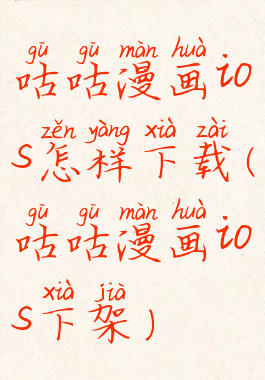 gū gū màn huà
咕咕漫画io
zěn yàng xià zài
S怎样下载(
gū gū màn huà
咕咕漫画io
xià jià
S下架)